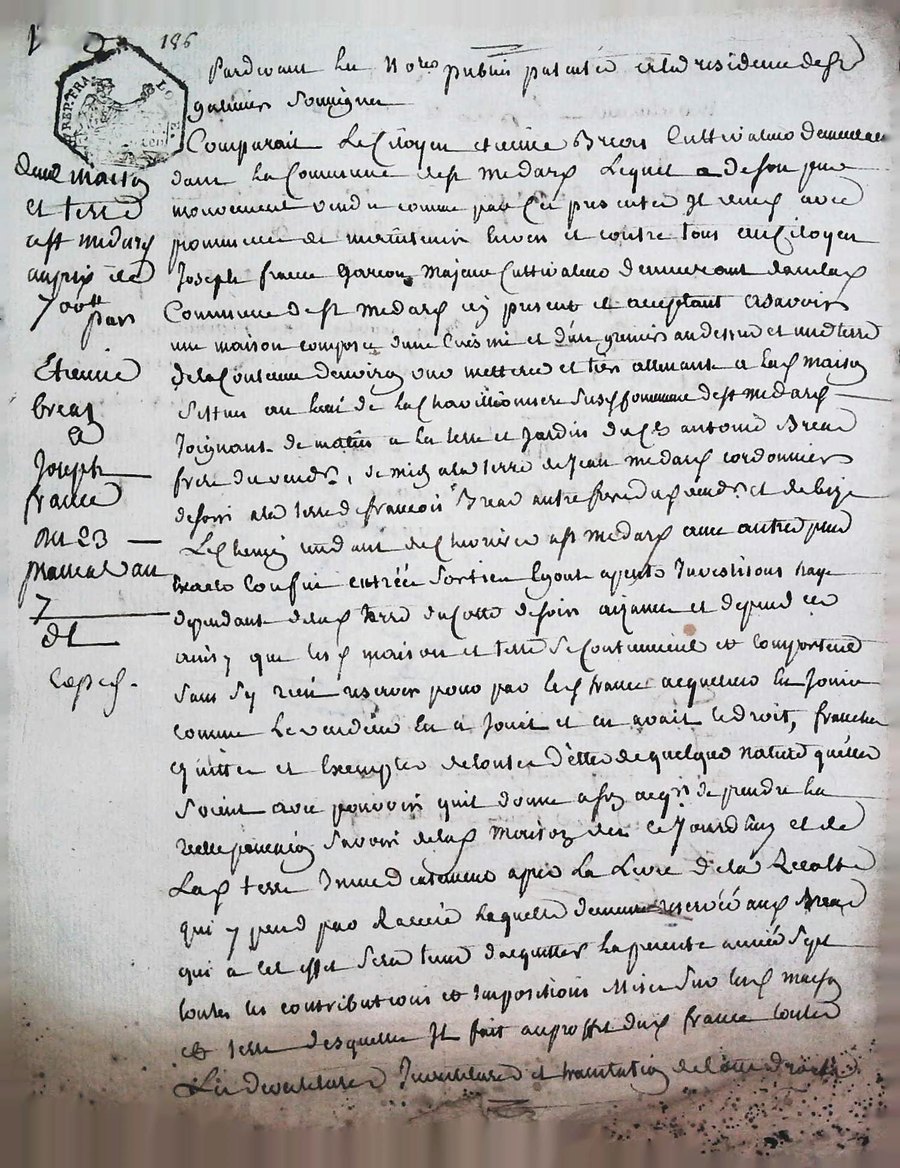 186
REP. FRA
LOT
Pardevant Les Nores publics patentés et la residence de St
galmier soussignés
Comparait Le Citoyen etienne Breas Cultivateur demeurant
dans la Commune de st medard Lequel a de son pure
mouvement vendu comme par ces presentes Il vend avec
promesse de maintenir Envers et contre tous au Citoyen
Joseph france garçon majeur Cultivateur demeurant dans lad
Commune de st medard icy present et acceptant asavoir
une maison composée d'une Cuisine et d'un grenier au dessus et une terre
de la Contenue denviron une metteree et tiers attenante a lad maison
Situés au lieu de la Susd Commune de st medard
Joignant de matin a la terre et Jardin du Cen antoine Breas
frere du vendr, de midy a la terre de Jean medard cordonnier
de soir a la terre de francois Breas autre frere dud vendr. et de bize
Le chemin tendant de a st medard avec autres plus
Exacts Confins entrées Sorties Egouts Investisons haye
dependant de lad terre du Cotté de soir aizances et dependces
ainsy que lesd maison et terre Se Contiennent et comportent
Sans Sy rien reserver pour par led france acquereur En Jouir
comme Le vendeur En a Jouit et en avait le droit, franches
quittes et Exemptes de toutes dettes de quelque nature quelles
Soient avec pouvoir quil donne and acqr. de prendre la
reelle possession Savoir de lad maison des ce Jourdhuy et de
Lad terre Immediatement après La Levée de la Recolte
qui y pend par Racine laquelle demeure reservée aud Breas
qui a cet effet Sera tenu d'acquitter la presente année Sept
toutes les contributions et Impositions Mises Sur lesd maison
et terre desquelles Il fait au proffit dud france toutes
Les devestitures Investitures et translation de tous droits
de une maison
et terre
a st medard
au prix de
700tt
par
Etienne
breas
a
Joseph
france
du 23
prairial an
7
dt
Exped.